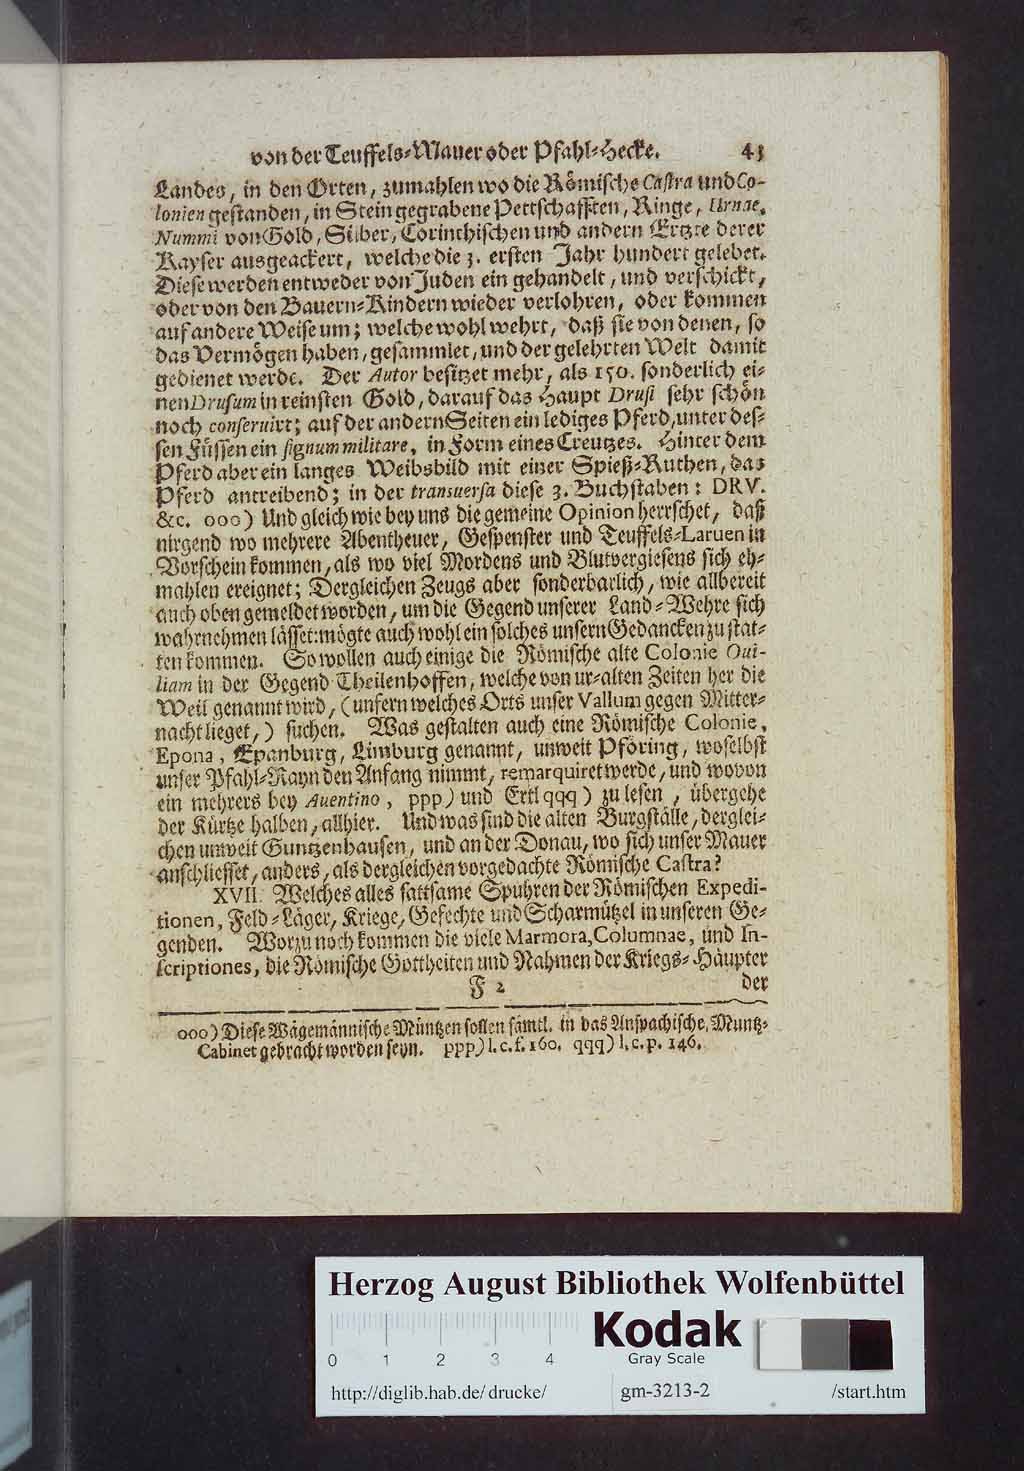 von der Teuffels-Mauer oder Pfahl-Hecke. 43
Landes, in den Orten, zumahlen wo die Römische Castra und Co-
lonien gestanden, in Stein gegrabene Pettschafften, Ringe, Urnae,
Nummi von Gold, Silber, Corinthischen und andern Ertzte derer
Kayser ausgeackert, welche die 3. ersten Jahr hundert gelebet.
Diese werden entweder von Juden ein gehandelt, und verschickt,
oder von den Bauern-Kindern wieder verlohren, oder kommen
auf andere Weise um; welche wohl wehrt, daß sie von denen, so
das Vermögen haben, gesammlet, und der gelehrten Welt damit
gedienet werde. Der Autor besitzet mehr, als 150. sonderlich ei-
nen Drusum in reinsten Gold, darauf das Haupt Drusi sehr schön
noch conseruirt; auf der andern Seiten ein lediges Pferd, unter des-
sen Füssen ein signum militare, in Form eines Creutzes. Hinter dem
Pferd aber ein langes Weibsbild mit einer Spieß-Ruthen, das
Pferd antreibend; in der transuersa diese 3. Buchstaben: DRV.
&c. ooo) Und gleich wie bey uns die gemeine Opinion herrschet, daß
nirgend wo mehrere Abentheuer, Gespenster und Teuffels-Laruen in
Vorschein kommen, als wo viel Mordens und Blutvergiesens sich eh-
mahlen ereignet; Dergleichen Zeugs aber sonderbarlich, wie allbereit
auch oben gemeldet worden, um die Gegend unserer Land-Wehre sich
wahrnehmen lässet: mögte auch wohl ein solches unsern Gedancken zu stat-
ten kommen. So wollen auch einige die Römische alte Colonie Oui-
liam in der Gegend Theilenhoffen, welche von ur-alten Zeiten her die
Weil genannt wird, (unfern welches Orts unser Vallum gegen Mitter-
nacht lieget,) suchen. Was gestalten auch eine Römische Colonie,
Epona, Epanburg, Limburg genannt, unweit Pföring, woselbst
unser Pfahl-Rayn den Anfang nimmt, remarquiret werde, und wovon
ein mehrers bey Auentino, ppp) und Ertl qqq) zu lesen, übergehe
der Kürtze halben, allhier. Und was sind die alten Burgställe, derglei-
chen unweit Guntzenhausen, und an der Donau, wo sich unser Mauer
anschliesset, anders, als dergleichen vorgedachte Römische Castra?
XVII. Welches alles sattsame Spuhren der Römischen Expedi-
tionen, Feld-Läger, Kriege, Gefechte und Scharmützel in unseren Ge-
genden. Worzu noch kommen die viele Marmora, Columnae, und In-
scriptiones, die Römische Gottheiten und Nahmen der Kriegs-Häupter
F 2 der
ooo) Diese Wägemännische Müntzen sollen sämtl. in das Anspachische, Muntz-
Cabinet gebracht worden seyn. ppp) l. c. f. 160. qqq) l. c. p. 146.
Herzog August Bibliothek Wolfenbüttel
Kodak
Gray Scale
0 1 2 3 4
http://diglib.hab.de/drucke/ gm-3213-2 /start.htm